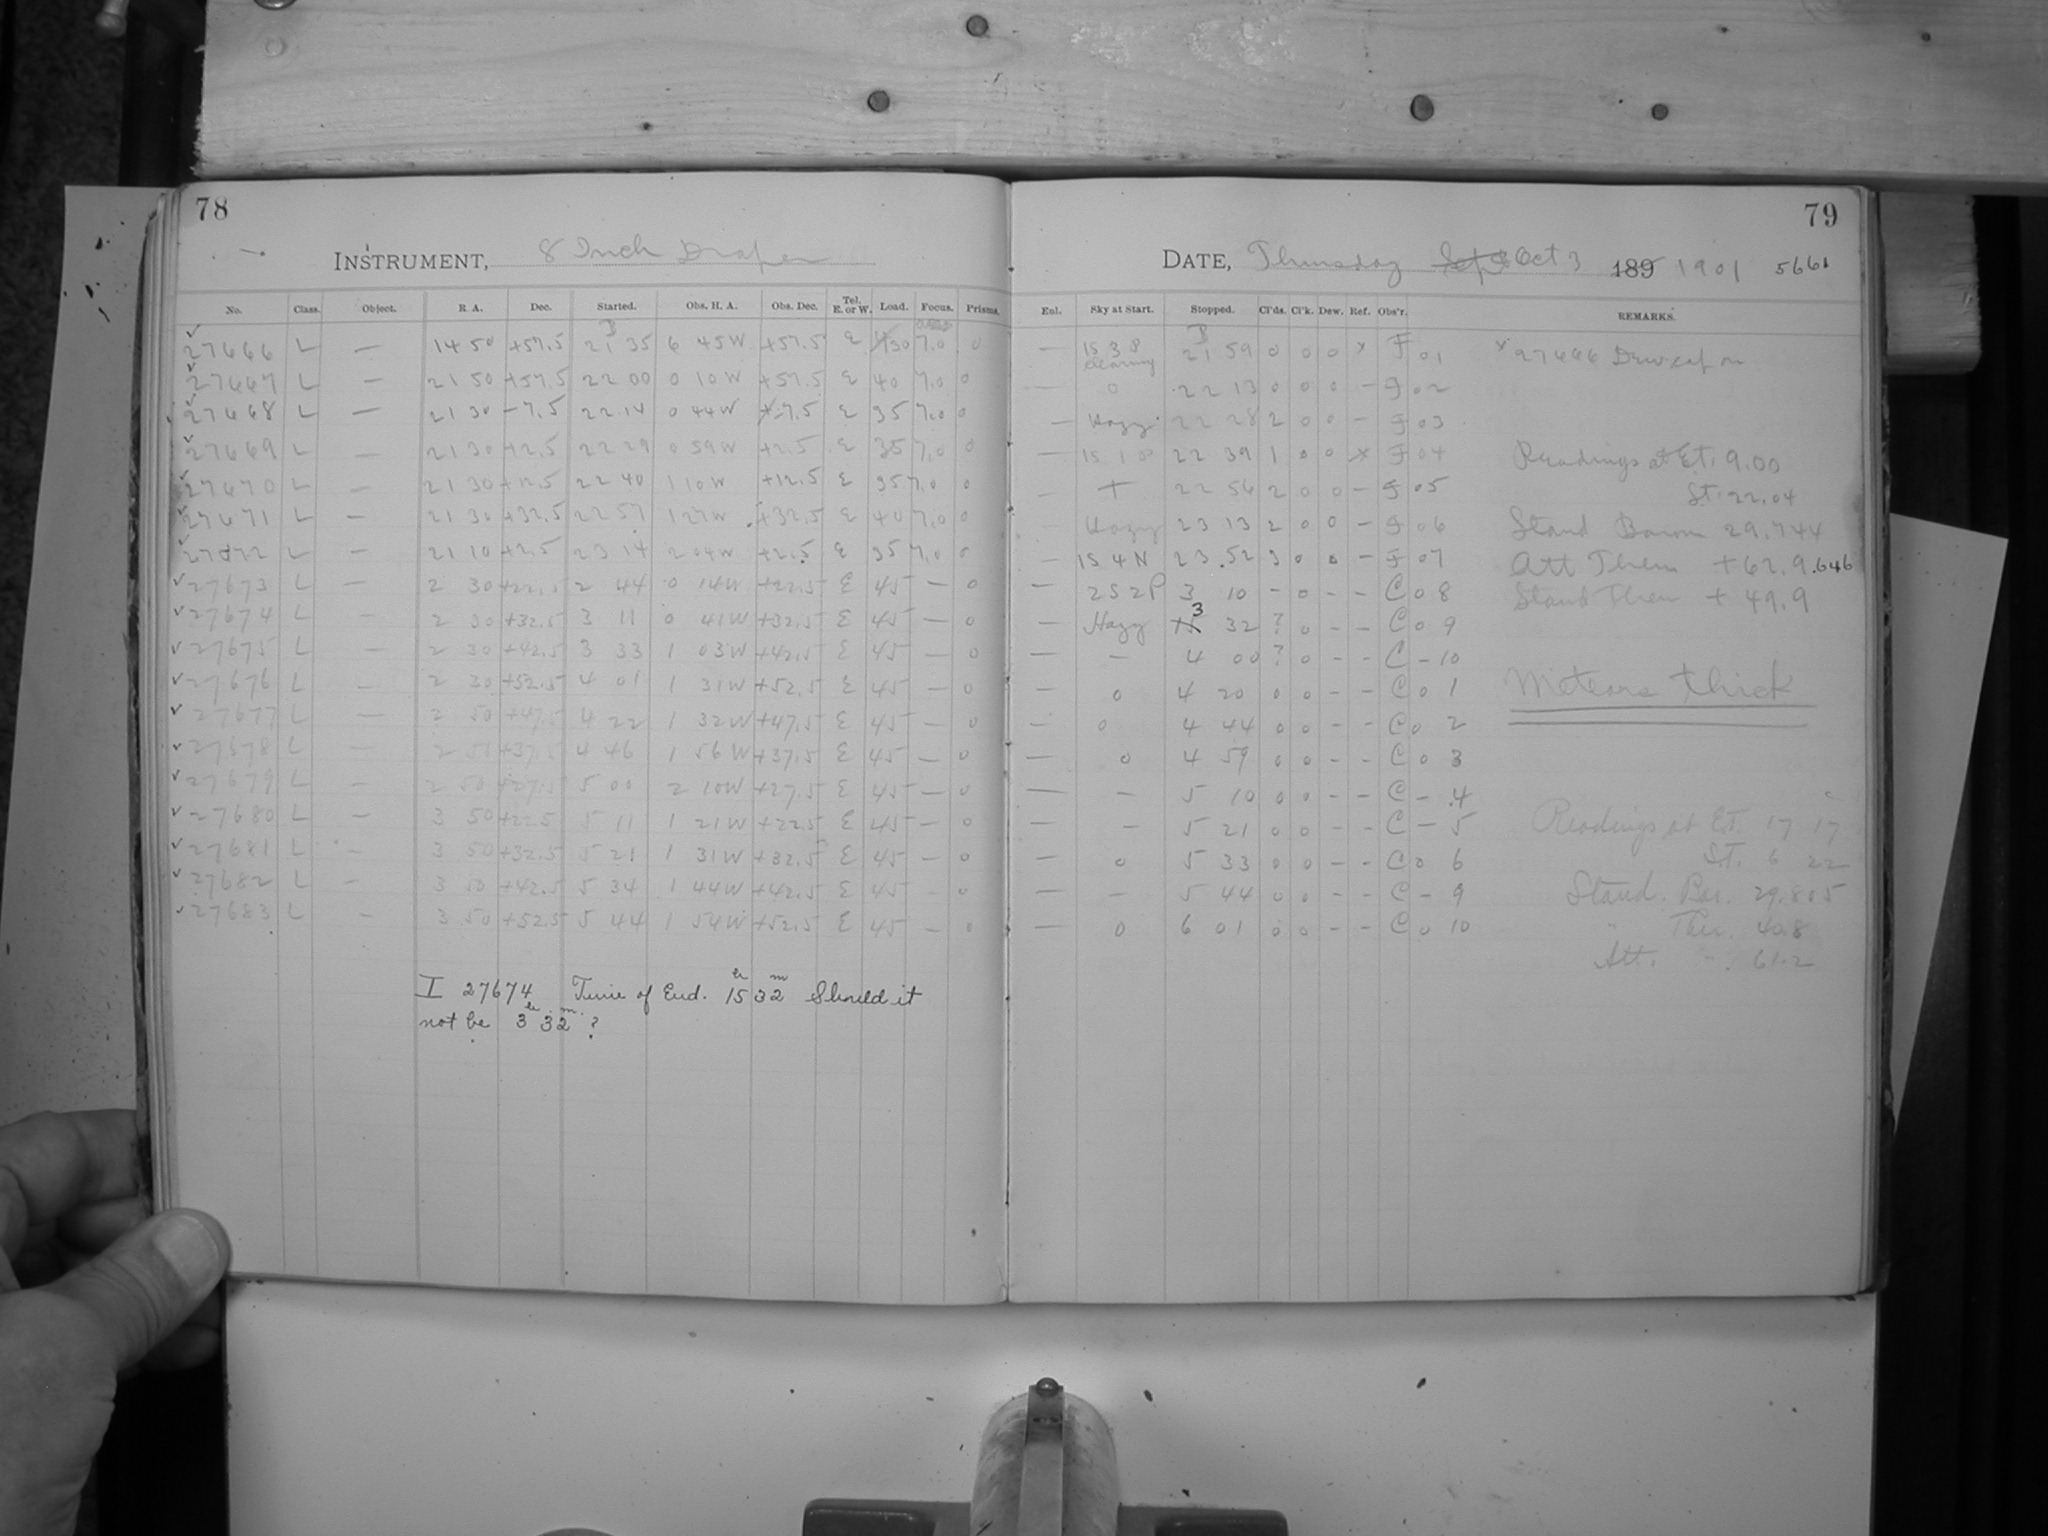 78
INSTRUMENT, 8 Inch Draper
No. Class. Object. R. A. Dec. Started. Obs. H. A. Obs. Dec. Tel. E. or W. Load. Focus. Prisms.
27666 L — 14 50 +57.5 21 35 6 45W +57.5 E 30 7.0 0
27667 L — 21 50 +57.5 22 00 0 10W +57.5 E 40 7.0 0
27668 L — 21 30 -7.5 22 14 0 44W -7.5 E 35 7.0 0
27669 L — 21 30 +2.5 22 29 0 59W +2.5 E 35 7.0 0
27670 L — 21 30 +12.5 22 40 1 10W +12.5 E 35 7.0 0
27671 L — 21 30 +32.5 22 57 1 27W +32.5 E 40 7.0 0
27672 L — 21 10 +2.5 23 14 2 04W +2.5 E 35 7.0 0
27673 L — 2 30 +22.5 2 44 0 14W +22.5 E 45 — 0
27674 L — 2 30 +32.5 3 11 0 41W +32.5 E 45 — 0
27675 L — 2 30 +42.5 3 33 1 03W +42.5 E 45 — 0
27676 L — 2 30 +52.5 4 01 1 31W +52.5 E 45 — 0
27677 L — 2 50 +47.5 4 22 1 32W +47.5 E 45 — 0
27678 L — 2 50 +37.5 4 46 1 56W +37.5 E 45 — 0
27679 L — 2 50 +27.5 5 00 2 10W +27.5 E 45 — 0
27680 L — 3 50 +22.5 5 11 1 21W +22.5 E 45 — 0
27681 L — 3 50 +32.5 5 21 1 31W +32.5 E 45 — 0
27682 L — 3 50 +42.5 5 34 1 44W +42.5 E 45 — 0
27683 L — 3 50 +52.5 5 44 1 54W +52.5 E 45 — 0
I 27674 Time of End. 15h 32m Should it
not be 3h 32m ?
79
DATE, Thursday Sept Oct 3 189 1901 5661
Enl. Sky at Start. Stopped. Cl'ds. Cl'k. Dew. Ref. Obs'r. REMARKS.
— 1S 3 8 clearing 21 59 0 0 0 x F 01 x 27666 Dewcap on
— 0 22 13 0 0 0 — F 02
— Hazy 22 28 2 0 0 — F 03
— 1S 1 22 39 1 0 0 x F 04 Readings at E.T. 9.00
— + 22 56 2 0 0 — F 05 S.T. 22.04
Hazy 23 13 2 0 0 — F 06 Stand Barom 29.744
— 1S 4 N 23.52 3 0 0 — F 07 Att Therm +62.9 .646
— 2S 2P 3 10 - 0 - - C 0 8 Stand Therm + 49.9
— Hazy 15 3 32 ? 0 - - C 0 9
— — 4 00 ? 0 - - C - 10
— 0 4 20 0 0 - - C 0 1 Meteors thick
— 0 4 44 0 0 - - C 0 2
— 0 4 59 0 0 - - C 0 3
— — 5 10 0 0 - - C - 4
— — 5 21 0 0 - - C - 5 Readings at E.T. 17 17
— 0 5 33 0 0 - - C 0 6 S.T. 6 22
— — 5 44 0 0 - - C - 9 Stand. Bar. 29.805
— 0 6 01 0 0 - - C 0 10 " Ther. 40.8
Att. " 61.2